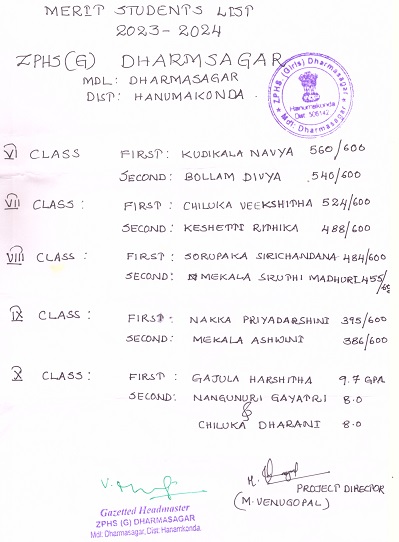 MERIT STUDENTS LIST
2023-2024
ZPHS(G) DHARMSAGAR
MDL: DHARMASAGAR
DIST: HANUMAKONDA.
ZPHS (Girls) Dharmasagar
Hanumakonda
Dist. 506142
Mdl. Dharmasagar
VI CLASS FIRST: KUDIKALA NAVYA 560/600
SECOND: BOLLAM DIVYA 540/600
VII CLASS: FIRST: CHILUKA VEEKSHITHA 524/600
SECOND: KESHETTI RITHIKA 488/600
VIII CLASS: FIRST: SORUPAKA SIRICHANDANA 484/600
SECOND: MEKALA SRUTHI MADHURI 455/
IX CLASS: FIRST: NAKKA PRIYADARSHINI 395/600
SECOND: MEKALA ASHWINI 386/600
X CLASS: FIRST: GAJULA HARSHITHA 9.7 GPA
SECOND: NANGUNURI GAYATRI 8.0
&
CHILUKA DHARANI 8.0
PROJECT DIRECTOR
(M.VENUGOPAL)
Gazetted Headmaster
ZPHS (G) DHARMASAGAR
Mdl: Dharmasagar, Dist: Hanamkonda.